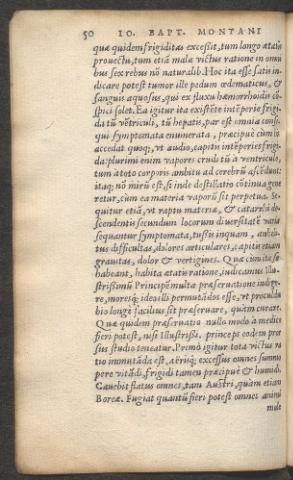 50 IO. BAPT. MONTANI
quæ quidem frigiditas excessit, tum longo ætatis
prouectu, tum etiã malæ victus ratione in omni
bus sex rebus nõ naturalib. Hoc ita esse satis in
dicare potest tumor ille pedum œdematicus, &
sanguis aquosus, qui ex fluxu hæmorrhoidis cõ
spici solet. Ea igitur ita existẽte intẽperie frigi
da tũ vẽtriculi, tũ hepatis, par est omnia conse
qui symptomata enumerata, præcipuè cùm eò
accedat quoq;, vt audio, capitis intẽperies frigi
da: plurimi enim vapores crudi tũ à ventriculo,
tum à toto corporis ambitu ad cerebrũ ascẽdunt:
itaq; nõ mirũ est, si inde destillatio cõtinua gene
retur, cùm ea materia vaporũ sit perpetua. Se
quitur etiã, vt raptu materiæ, & catarrhi de-
scendentis secundum locorum diuersitatẽ varia
sequantur symptomata, tussis inquam, anheli-
tus difficultas, dolores articulares, capitis etiam
grauitas, dolor & vertigines. Quæ cùm ita se
habeant, habita ætatis ratione, iudicamus Illu-
strissimũ Principẽ multa præseruatione indige-
re, moresq; ideo illi permutãdos esse, vt procul du
bio longè facilius sit præseruare, quàm curare.
Quæ quidem præseruatio nullo modo à medicis
fieri potest, nisi Illustriss. princeps eodem pror
sus studio teneatur. Primò igitur tota victus ra
tio immutãda est, aërisq; excessus omnes summo
pere vitãdi, frigidi tamen præcipuè & humidi.
Cauebit flatus omnes, tam Austri, quàm etiam
Boreæ. Fugiat quantũ fieri potest omnes animi
mot